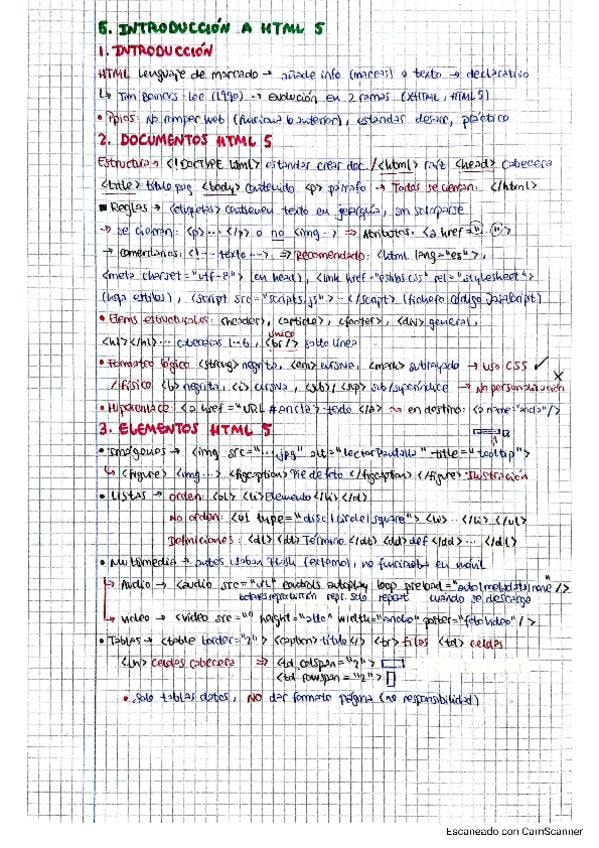 5. INTRODUCCIÓN A HTML 5
1. INTRODUCCIÓN
HTML lenguaje de marcado → añade info (marcas) a texto → declarativo
↳ Tim Berners-Lee (1990) → evolución en 2 ramas (XHTML, HTML5)
• Ppios: No romper web (funciona lo anterior), estandar desarr, práctico
2. DOCUMENTOS HTML 5
Estructura → <!DOCTYPE html> estandar crear doc / <html> raíz <head> cabecera
<title> título pag <body> contenido <p> párrafo → Todas se cierran. </html>
■ Reglas → <etiquetas> contienen texto en jerarquía, sin solaparse
→ se cierran: <p>...</p> o no <img...> ⇒ Atributos: <a href="...">
→ comentarios: <!-- texto --> ⇒ Recomendado: <html lang="es">,
<meta charset="utf-8"> (en head), <link href="estilos.css" rel="stylesheet">
(hoja estilos), <script src="scripts.js">...</script> (fichero código JavaScript)
• Elems estructurales: <header>, <article>, <footer>, <div> general,
<h1></h1>... cabeceras 1-6, <br/> salto línea
único
• Formateo lógico <strong> negrita, <em> cursiva, <mark> subrayado → uso CSS ✓
/ físico <b> negrita, <i> cursiva, <sub>/<sup> sub/superíndice → No personalización ×
• Hiperenlace <a href="URL #ancla"> texto </a> → en destino: <a name="ancla"/>
3. ELEMENTOS HTML 5
• Imágenes → <img src="...jpg" alt="lector Pantalla" title="tooltip">
↳ <figure> <img...> <figcaption> Pie de foto </figcaption> </figure> Ilustración
• Listas → orden: <ol> <li> Elemento </li> </ol>
No orden: <ul type="disc|circle|square"> <li>...</li> </ul>
Definiciones: <dl> <dt> Término </dt> <dd> def </dd>... </dl>
• Multimedia → antes usaban Flash (externo), no funcionaba en móvil
↳ Audio → <audio src="url" controls autoplay loop preload="auto|metadata|none"/>
botones reproducción repr. solo repeat cuándo se descarga
↳ video → <video src="" height="alto" width="ancho" poster="foto video"/>
• Tablas → <table border="2"> <caption> título </> <tr> filas <td> celdas
<th> celdas cabecera ⇒ <td colspan="2">
<td rowspan="2">
• Solo tablas datos, NO dar formato página (no responsibilidad)
Escaneado con CamScanner